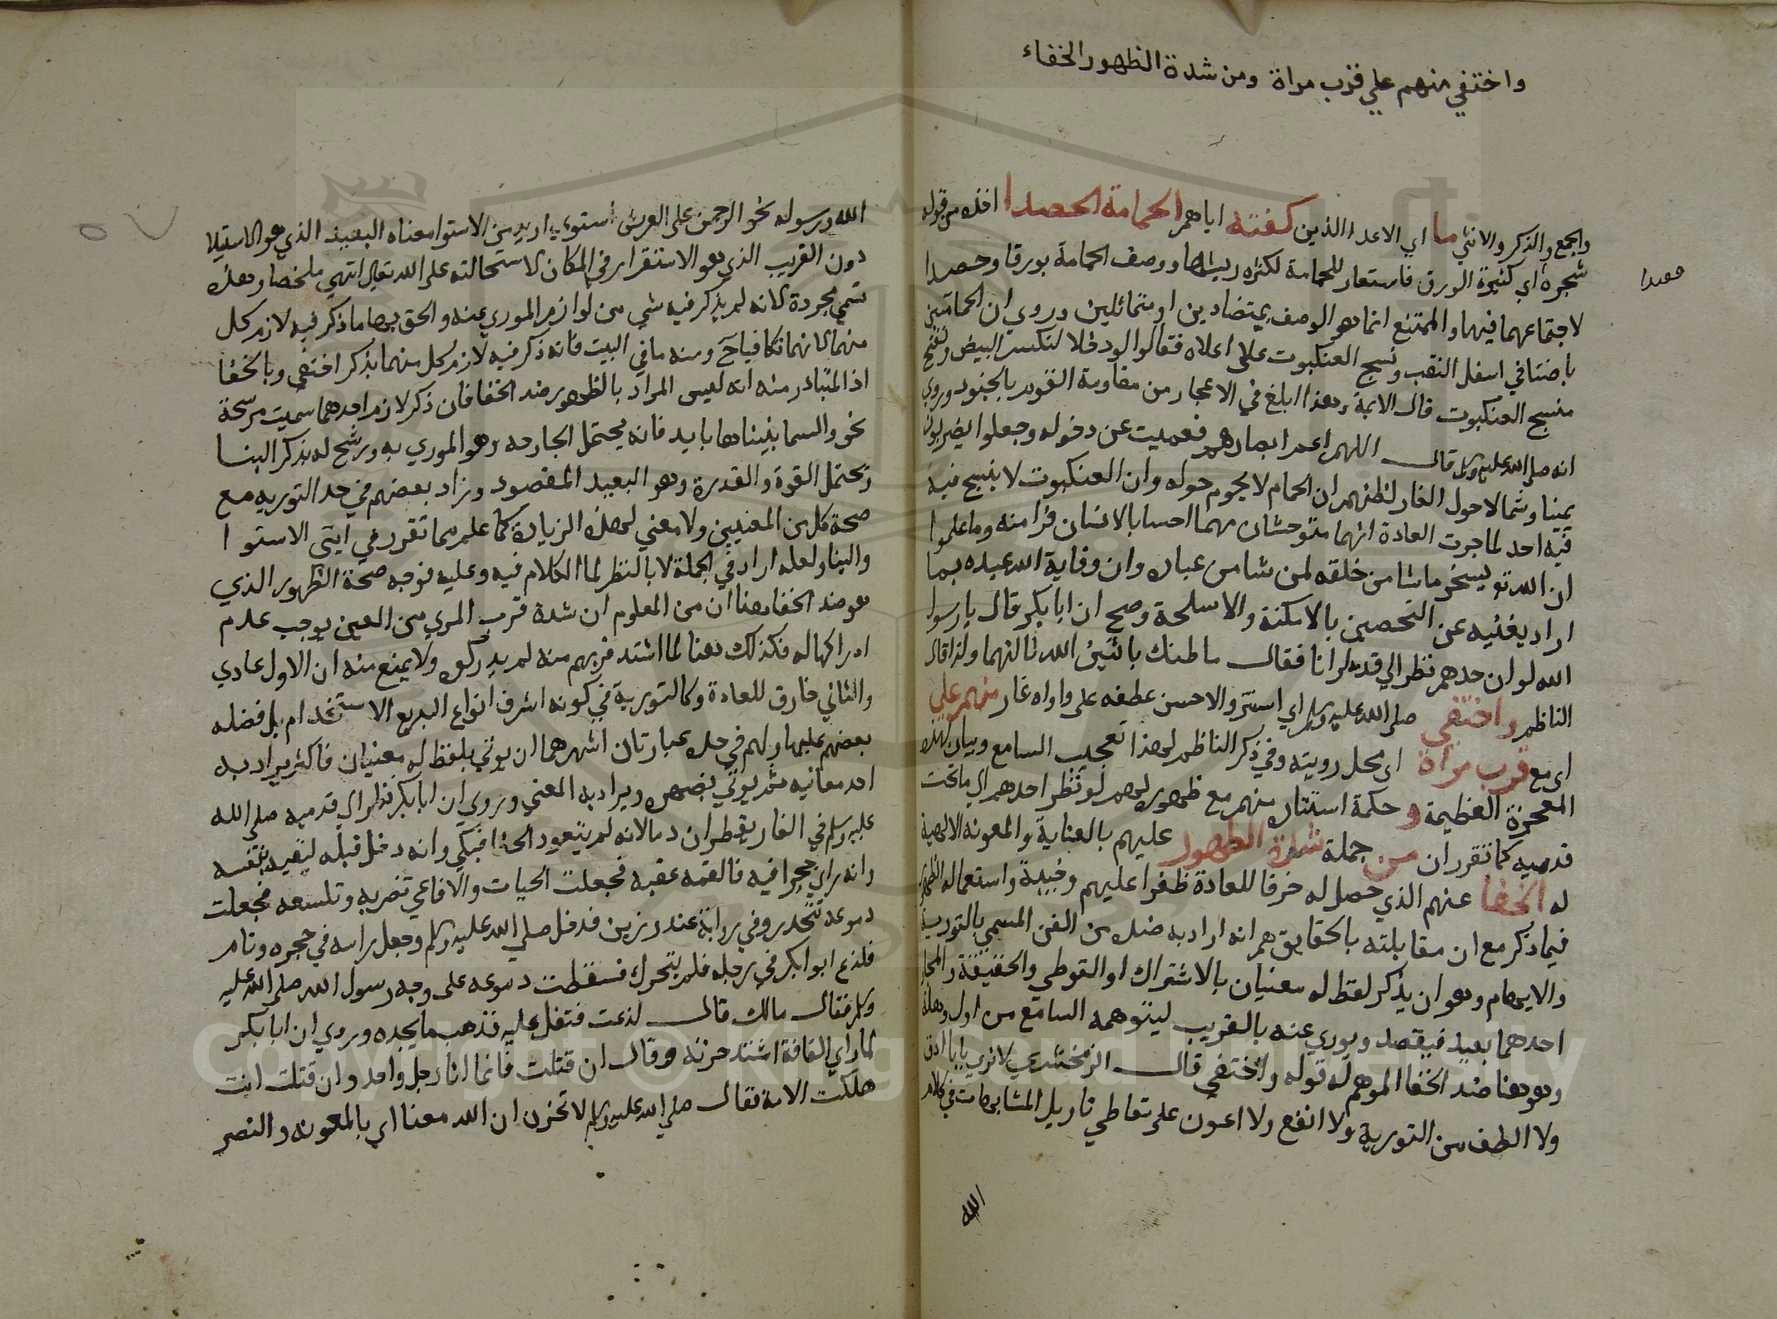 واختفي منهم علي قرب مراة ومن شدة الظهور الخفاء
والجمع والذكر والانثي ما اي الاعدا الذين كفته اياهم الحمامة الحصدا اخذه من قوله
حصدا
شجرة اي كثيرة الورق فاستعار للحمامة لكثرة ريشها ووصف الحمامة بورقا وحصدا
لاجتماعهما فيها والممتنع انما هو الوصف بمتضادين او متماثلين وروي ان الحمامتين
باضتا في اسفل النقب ونسج العنكبوت علي اعلاه فقالوا لو دخلا لتكسر البيض وتفسخ
منسج العنكبوت قال الايمة وهذا ابلغ في الاعجاز من مقاومة القوم بالجنود وروي
انه صلي الله عليه وسلم قال اللهم اعم ابصارهم فعميت عن دخوله وجعلوا يضربون
يمينا وشمالا حول الغار لظنهم ان الحمام لا يحوم حوله وان العنكبوت لا ينسج فيه
فيه احد لما جرت العادة انهما متوحشان مهما احسا بالانسان فرا منه وما علموا
ان الله تع يسخر ما شا من خلقه لمن شا من عباده وان وقاية الله عبده بما
اراد يغنيه عن التحصين بالامكنة والاسلحة وصح ان ابا بكر قال يا رسول
الله لو ان احدهم نظر الي قدميه لرانا فقال ما ظنك باثنين الله ثالثهما ولذا قال
الناظم واختفي صلي الله عليه وسلم اي استتر والاحسن عطفه علي واواه غار منهم علي
اي مع قرب مراة اي محل رويته وفي ذكر الناظم لهذا تعجيب السامع وبيان لهذه
المعجزة العظيمة وحكمة استتاره منهم مع ظهوره لهم لو نظر احدهم الي ما تحت
قدميه كما تقرر ان من جملة شدة الظهور عليهم بالعناية والمعونة الالهية
له الخفا عنهم الذي حصل له خرقا للعادة ظفرا عليهم وخيبة واستعماله الظهور
فيما ذكر مع ان مقابلته بالخفا يوهم انه اراد به ضده من الفن المسمي بالتورية
والايهام وهو ان يذكر لفظ له معنيان بالاشتراك او التواطي والحقيقة والمجاز
احدهما بعيد فيقصد ويوري عنه بالقريب ليتوهمه السامع من اول وهلة
وهو هنا ضد الخفا الموهم له قوله واختفي قال الزمخشري لا نري بابا ادق
ولا الطف من التورية ولا انفع ولا اعون علي تعاطي تاويل المتشابهات في كلام
الله
الله ورسوله نحو الرحمن علي العرش استوي اريد من الاستوا معناه البعيد الذي هو الاستيلا
دون القريب الذي هو الاستقرار في المكان لاستحالته علي الله تعالي انتهي ملخصا وهذه
تسمي مجردة لانه لم يذكر فيه شي من لوازم الموري عنه والحق بها ما ذكر فيه لازم كل
منهما لانهما تكافيا ومنه ما في البيت فانه ذكر فيه لازم كل منهما بذكر اختفي وبالخفا
اذ المتبادر منه انه ليس المراد بالظهور ضد الخفا فان ذكر لازم احدهما سميت مرشحة
نحو والسما بنيناها بايد فانه يحتمل الجارحة وهو الموري به ورشح له بذكر البنا
وتحتمل القوة والقدرة وهو البعيد المقصود وزاد بعضهم في حد التورية مع
صحة كل من المعنيين ولا معني لهذه الزيادة كما علم مما تقرر في ايتي الاستوا
والبنا ولعله اراد في الجملة لا بالنظر لما الكلام فيه وعليه فوجه صحة الظهور الذي
هو ضد الخفا هنا ان من المعلوم ان شدة قرب المري من العين يوجب عدم
ادراكها له فكذلك هنا لما اشتد قربهم منه لم يدركوه ولا يمنع منه ان الاول عادي
والثاني خارق للعادة وكالتورية في كونه اشرف انواع البديع الاستخدام بل فضله
بعضهم عليها ولهم في حده عبارتان اشهرهما ان يوتي بلفظ له معنيان فاكثر يراد به
احد معانيه ثم يوتي بضميره ويراد به المعني وروي ان ابا بكر نظر الي قدميه صلي الله
عليه وسلم في الغار يقطران دما لانه لم يتعود الحفا فبكي وانه دخل قبله ليقيه بنفسه
وانه راي جحرا فيه فالقمه عقبه فجعلت الحيات والافاعي تضربه وتلسعه فجعلت
دموعه تتحدر وفي رواية عند رزين فدخل صلي الله عليه وسلم وجعل راسه في حجره ونام
فلدغ ابو بكر في رجله فلم يتحرك فسقطت دموعه علي وجه رسول الله صلي الله عليه
وسلم فقال مالك قال لدغت فتفل عليه فذهب ما يجده وروي ان ابا بكر
لما راي القافة اشتد حزنه وقال ان قتلت فانما انا رجل واحد وان قتلت انت
هلكت الامة فقال صلي الله عليه وسلم لا تحزن ان الله معنا اي بالمعونة والنصر
Copyright © King Saud University